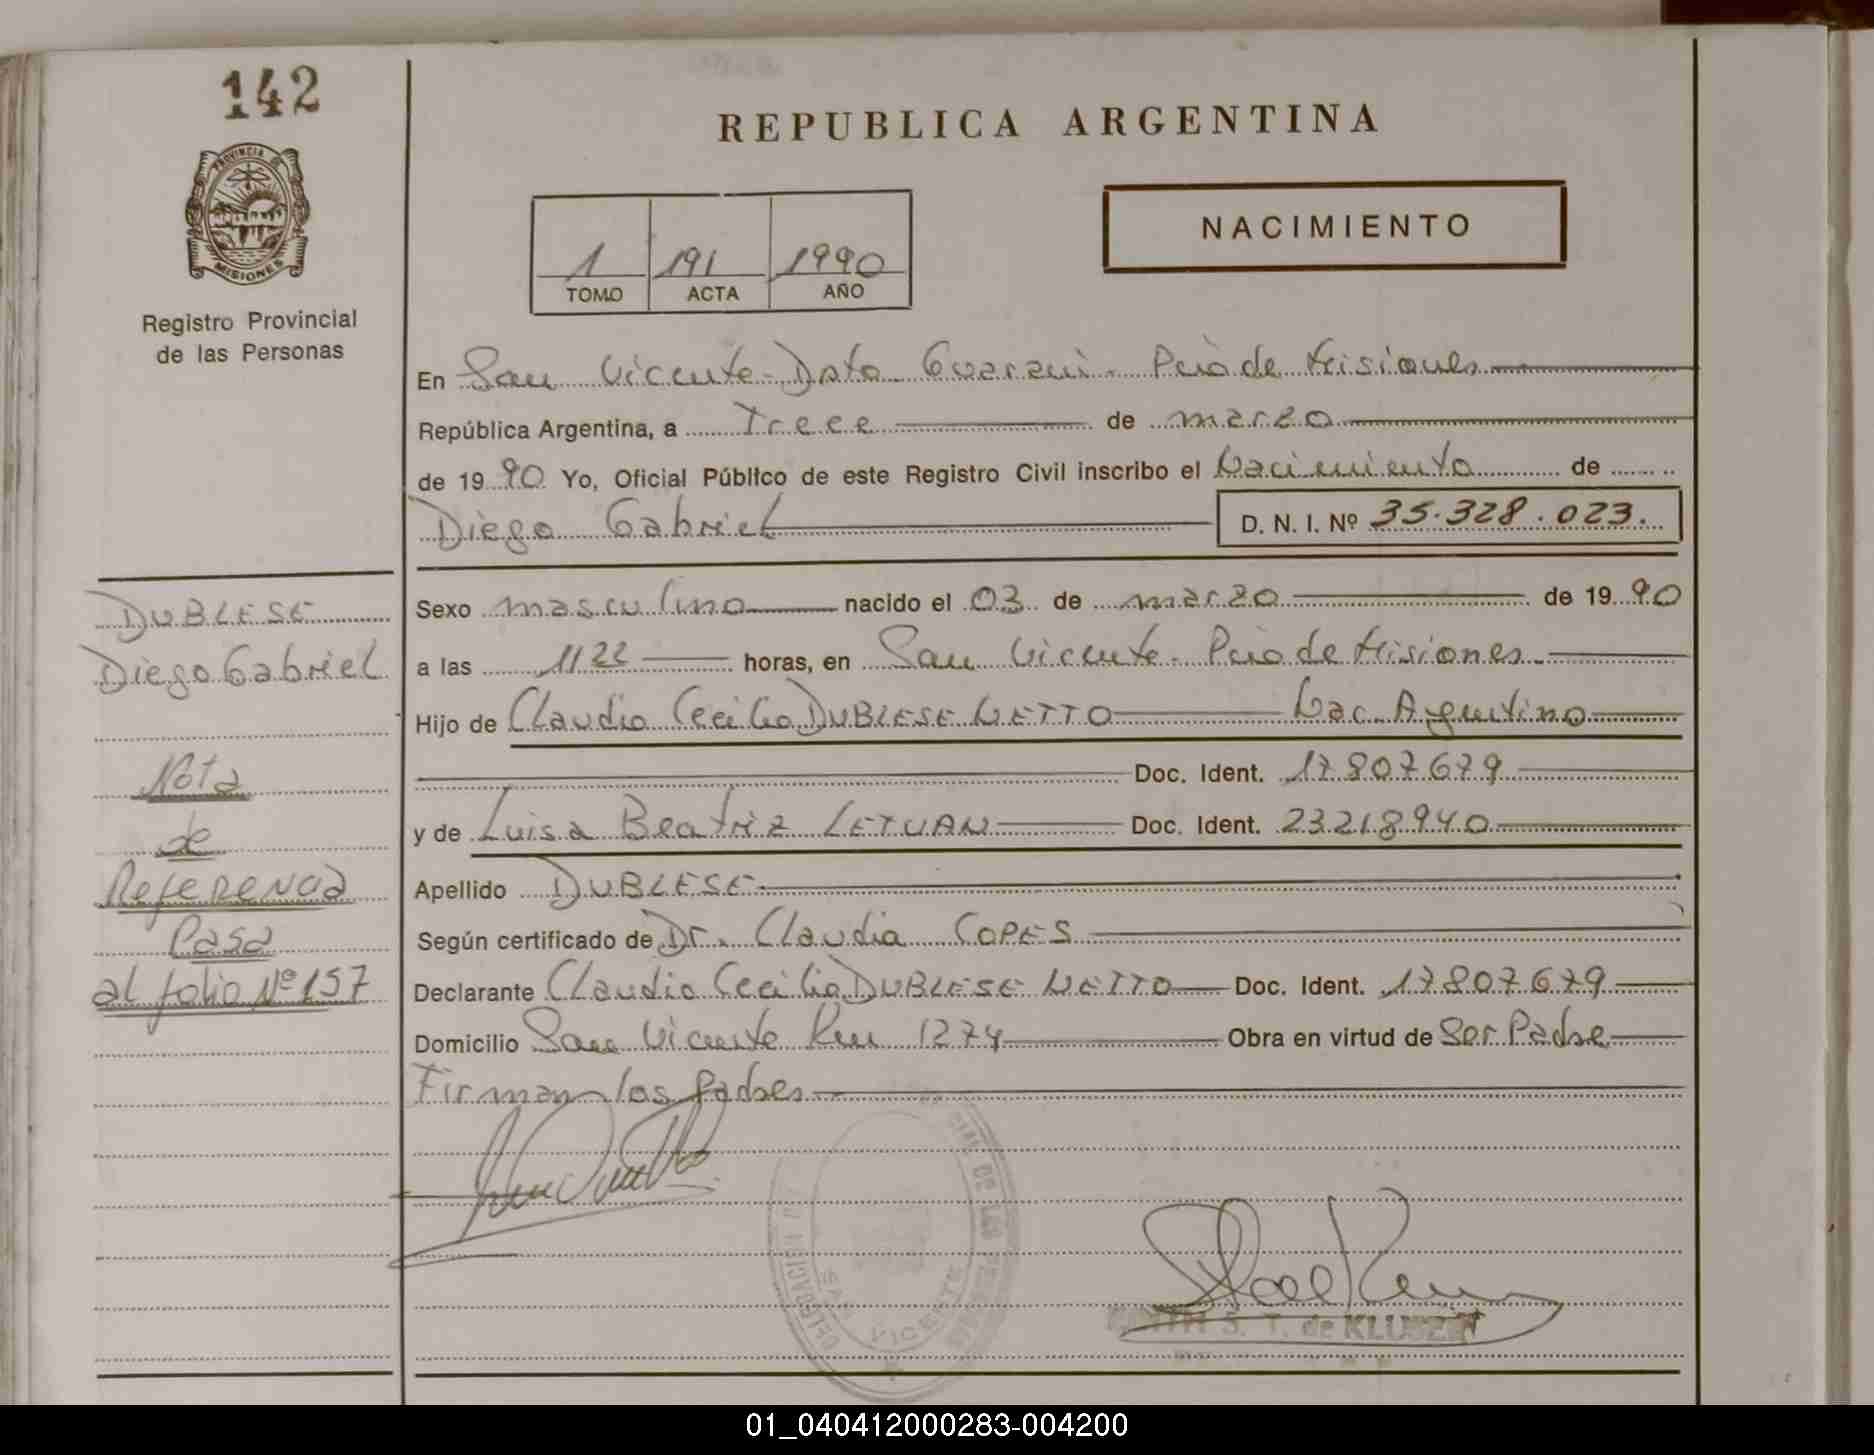 142
PROVINCIA DE
MISIONES
Registro Provincial
de las Personas
REPUBLICA ARGENTINA
1 191 1990
TOMO ACTA AÑO
NACIMIENTO
En San Vicente - Dpto Guarani - Pcia de Misiones
República Argentina, a Trece de marzo
de 1990 Yo, Oficial Público de este Registro Civil inscribo el Nacimiento de
Diego Gabriel D. N. I. Nº 35.328.023.
Sexo masculino nacido el 03 de marzo de 1990
a las 1122 horas, en San Vicente - Pcia de Misiones
Hijo de Claudio Cecilio DUBLESE NETTO Nac. Argentino
Doc. Ident. 17807679
y de Luisa Beatriz LETUAN Doc. Ident. 23218940
Apellido DUBLESE
Según certificado de Dr. Claudia COPES
Declarante Claudio Cecilio DUBLESE NETTO Doc. Ident. 17807679
Domicilio San Vicente Km 1274 Obra en virtud de Ser Padre
Firman los padres
DUBLESE
Diego Gabriel
Nota
de
Referencia
Pasa
al folio Nº 157
DELEGACION
SAN VICENTE
S. T. de
01_040412000283-004200